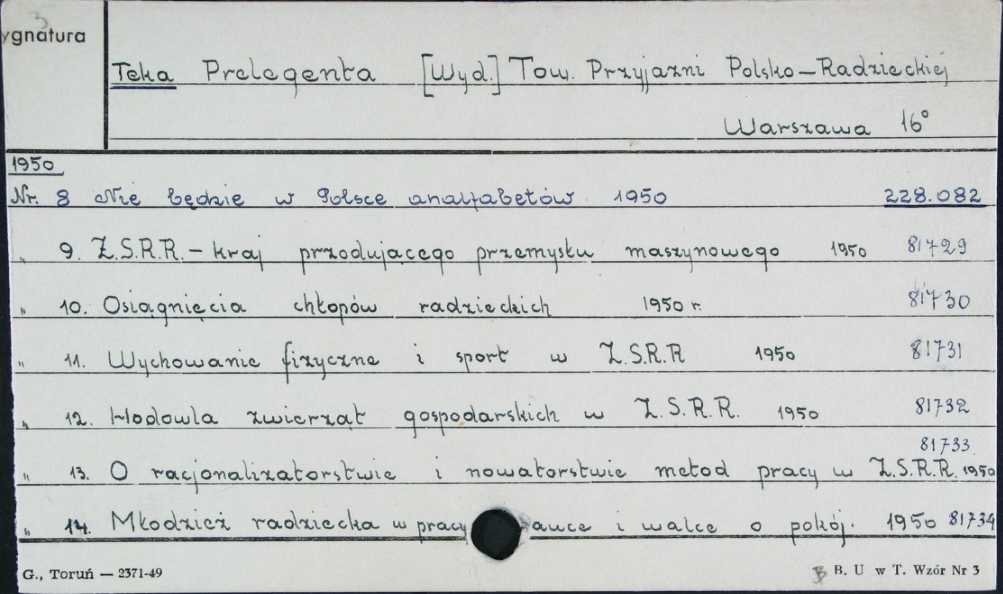 ygnatura
Teka Prelegenta [Wyd.] Tow. Przyjazni Polsko-Radzieckiej
Warszawa 16°
1950
Nr. 8 Nie będzie w Polsce analfabetów 1950 228.082
„ 9. Z.S.R.R. - kraj przodującego przemysłu maszynowego 1950 81729
„ 10. Osiągnięcia chłopów radzieckich 1950 r. 81730
„ 11. Wychowanie fizyczne i sport w Z.S.R.R 1950 81731
„ 12. Hodowla zwierząt gospodarskich w Z.S.R.R. 1950 81732
81733
„ 13. O racjonalizatorstwie i nowatorstwie metod pracy w Z.S.R.R. 1950
„ 14. Młodzież radziecka w pracy auce i walce o pokój. 1950 81734
G., Toruń — 2371-49 B. U w T. Wzór Nr 3